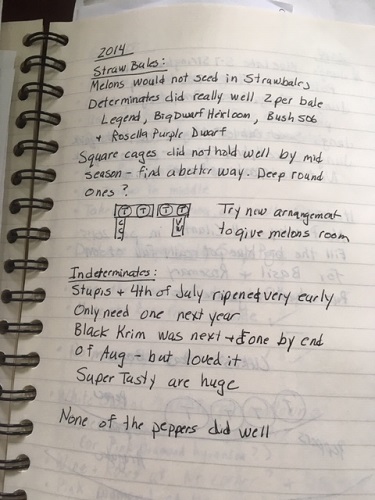 2014
Straw Bales:
Melons would not seed in Strawbales
Determinates did really well 2 per bale
Legend, Big Dwarf Heirloom, Bush 506
+ Rosella Purple Dwarf
Square cages did not hold well by mid
season - find a better way. Deep round
ones?
T T T T
Try new arrangement
to give melons room
Indeterminates:
Stupis + 4th of July ripened very early
Only need one next year
Black Krim was next + done by end
of Aug - but loved it
Super Tasty are huge
None of the peppers did well